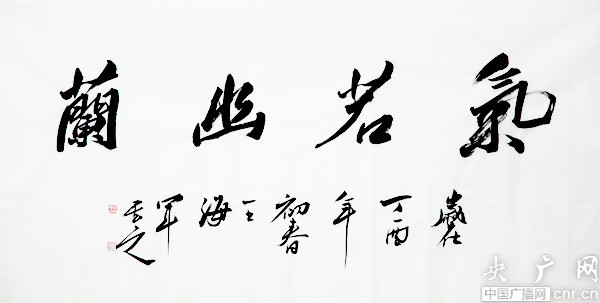 氣若幽蘭
歲在丁酉年初春王海軍書之
央广网
中国广播网 cnr.cn